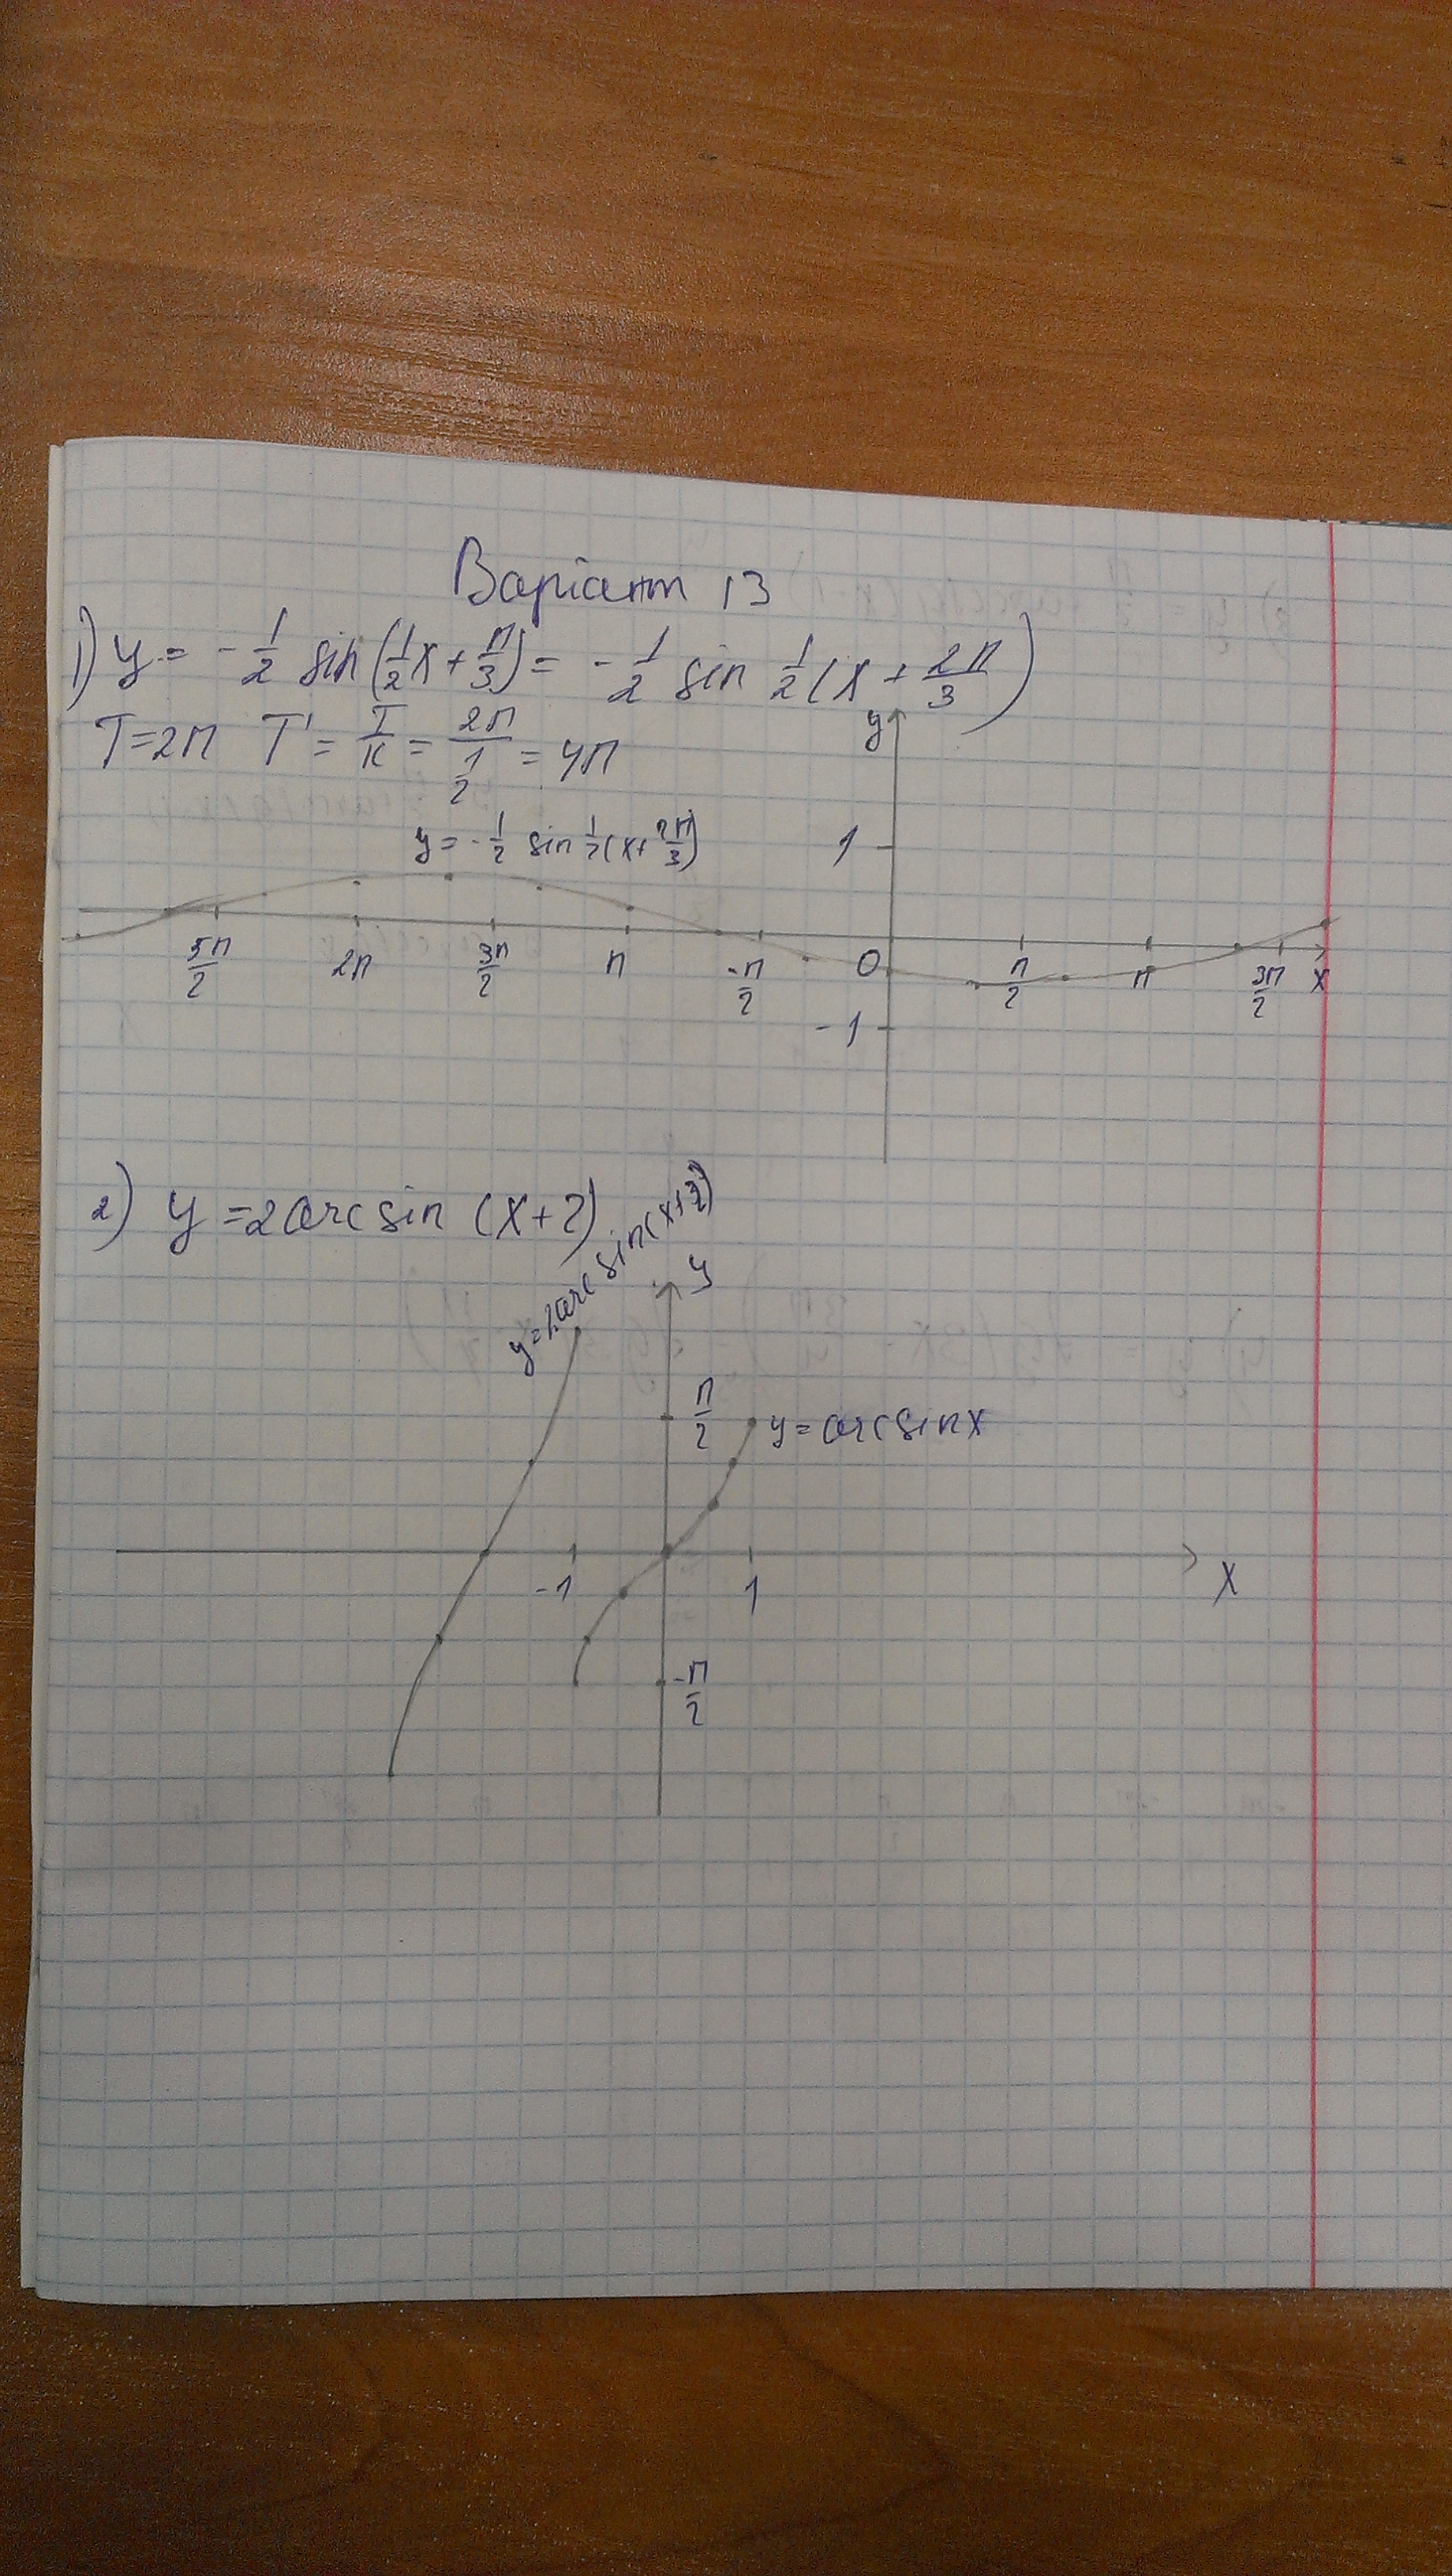 Варіант 13
1) y = -1/2 sin(1/2x + π/3) = -1/2 sin 1/2(x + 2π/3)
T=2π T' = T/k = 2π/(1/2) = 4π
y
y = -1/2 sin 1/2(x+2π/3)
1
5π/2 2π 3π/2 π -π/2 0 π/2 π 3π/2 x
-1
2) y = 2arcsin (x+2)
y=2arcsin(x+2)
y
π/2 y = arcsinx
-1 1 x
-π/2